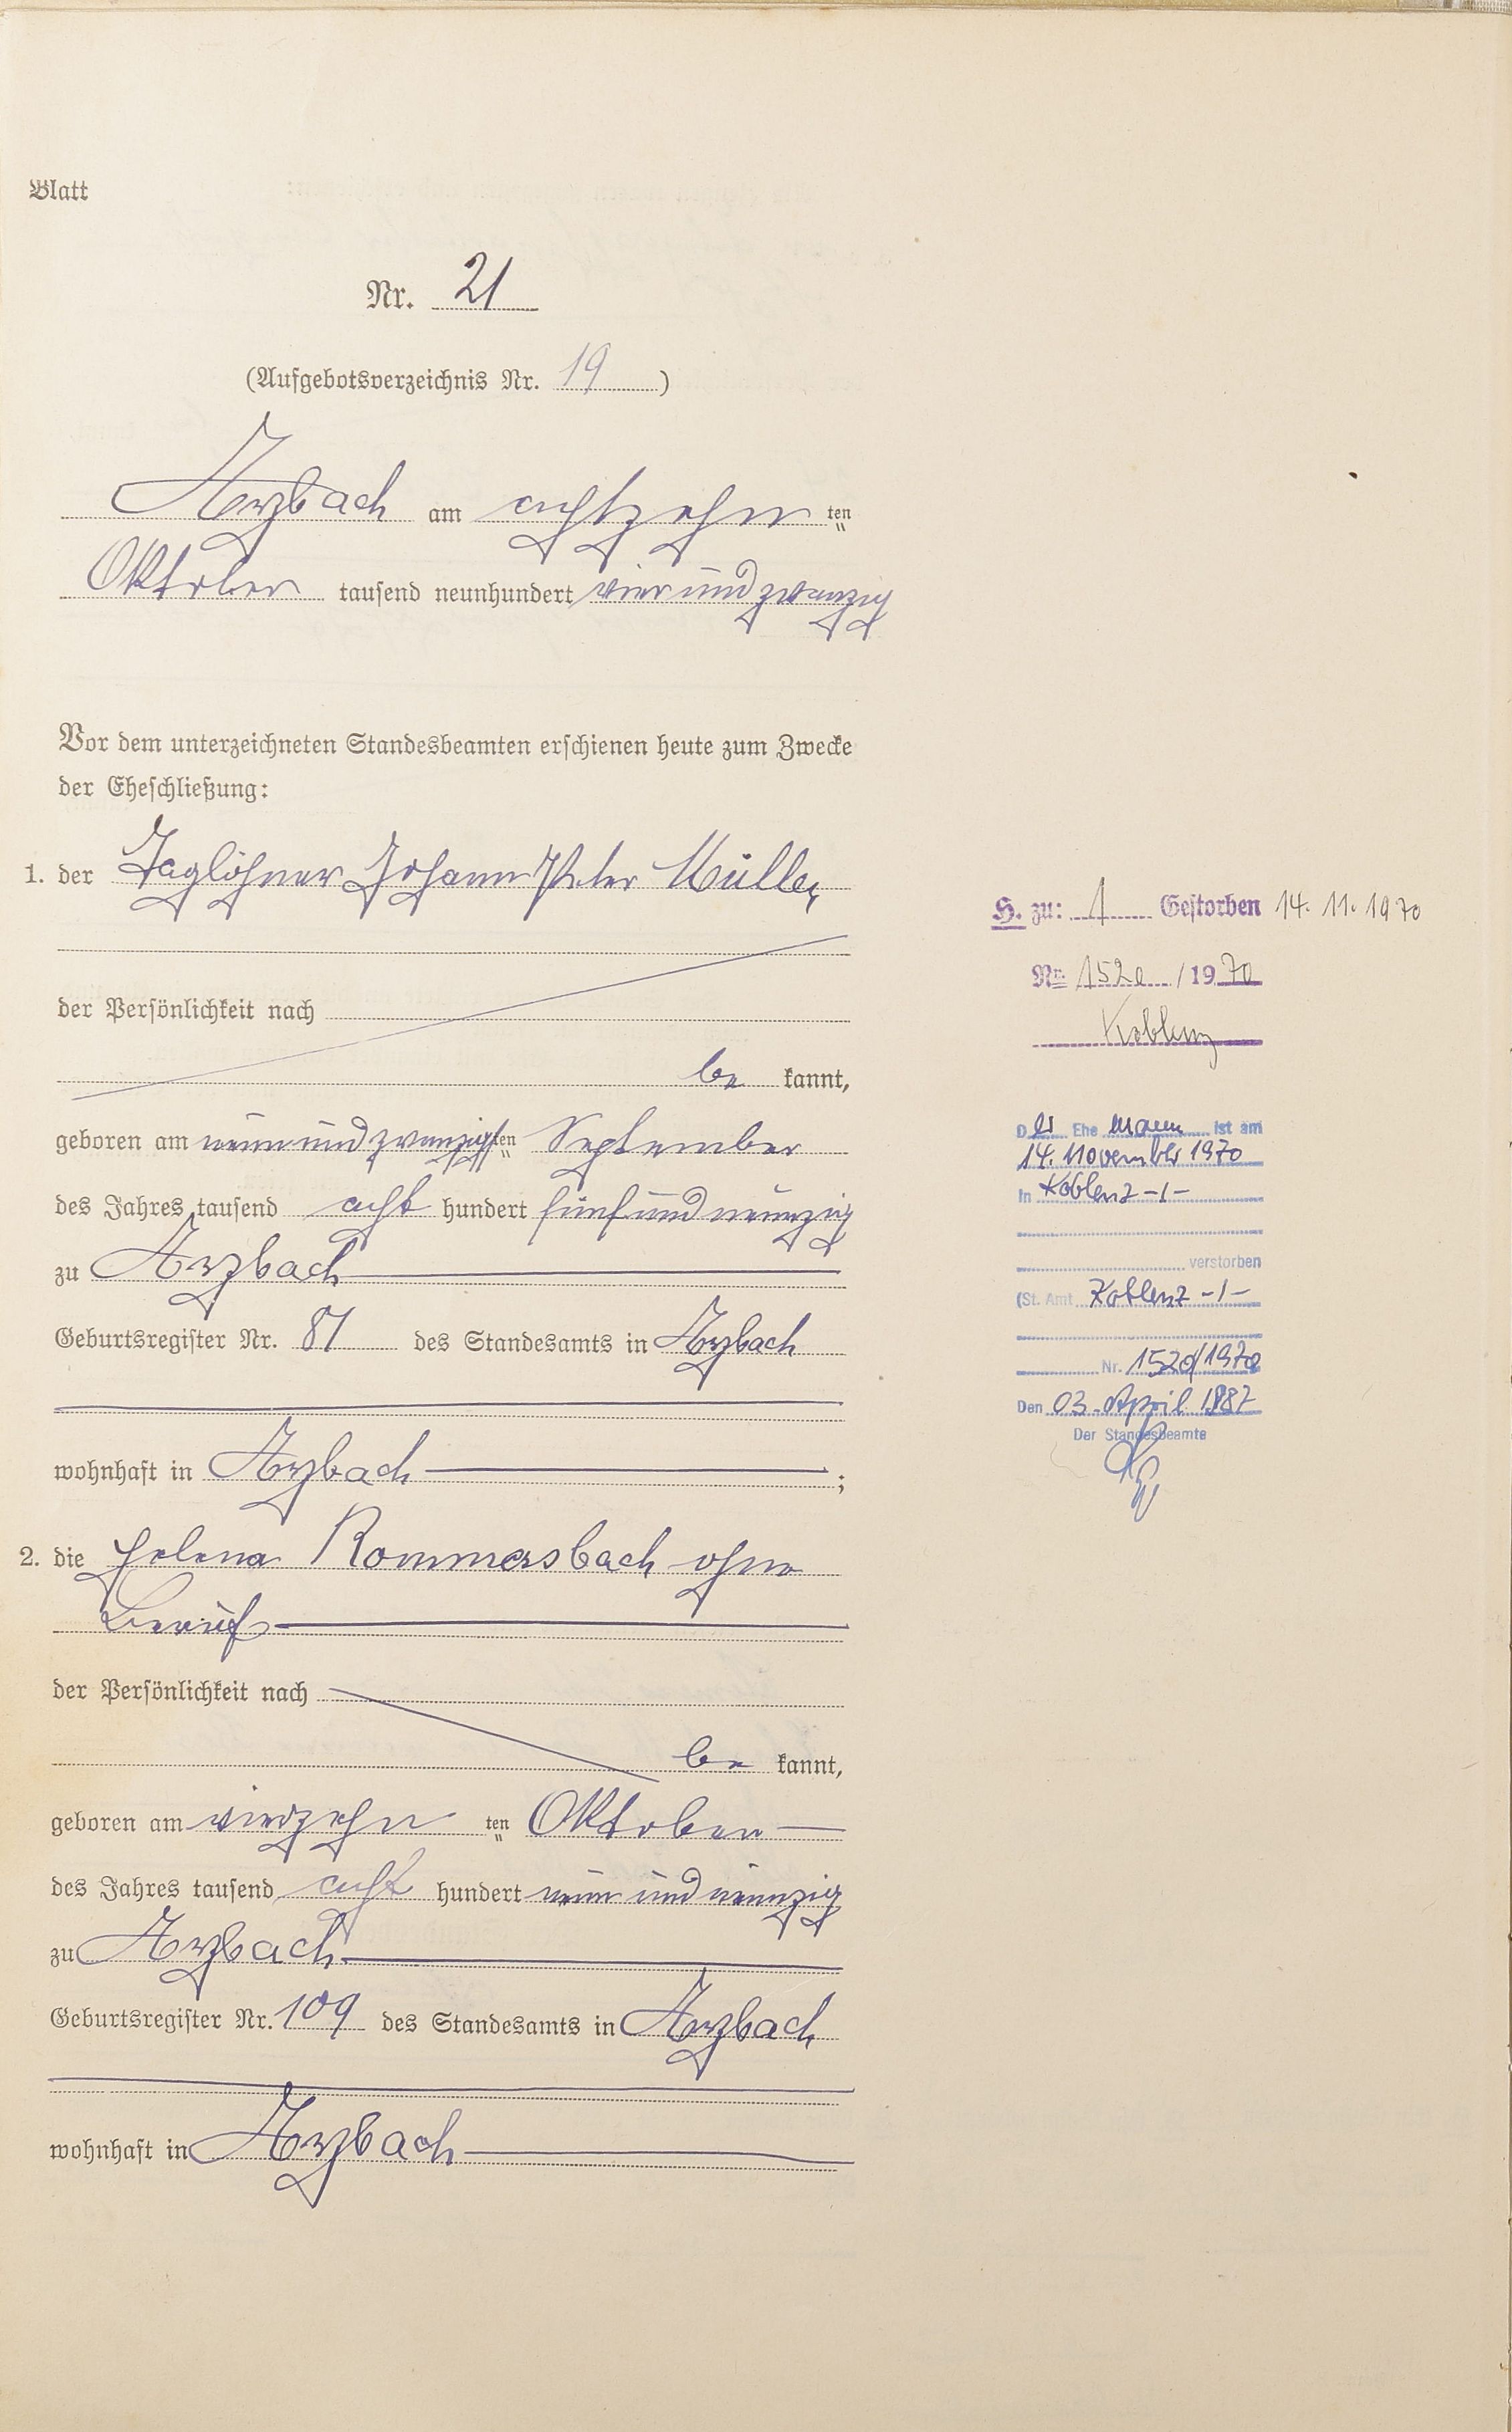 Blatt
Nr. 21
(Aufgebotsverzeichnis Nr. 19)
Arzbach am achtzehnten
Oktober tausend neunhundert vier und zwanzig
Vor dem unterzeichneten Standesbeamten erschienen heute zum Zwecke
der Eheschließung:
1. der Taglöhner Johann Peter Müller,
der Persönlichkeit nach
be kannt,
geboren am neun und zwanzigsten September
des Jahres tausend acht hundert fünf und neunzig
zu Arzbach
Geburtsregister Nr. 81 des Standesamts in Arzbach
wohnhaft in Arzbach ;
2. die Helena Rommersbach ohne
Beruf
der Persönlichkeit nach
be kannt,
geboren am vierzehn ten Oktober
des Jahres tausend acht hundert neun und neunzig
zu Arzbach
Geburtsregister Nr. 109 des Standesamts in Arzbach
wohnhaft in Arzbach
H. zu: 1 Gestorben 14. 11. 1970
Nr. 1520 / 1970
Koblenz
Der Ehe mann ist am
14. November 1970
in Koblenz -1-
verstorben
(St. Amt Koblenz -1-
Nr. 1520/1970
Den 03. April 1987
Der Standesbeamte